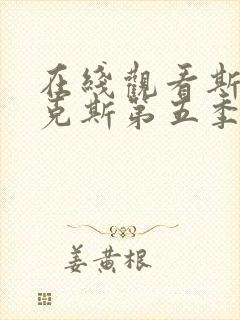 在綫觀看斯
克斯第五季
姜黄根